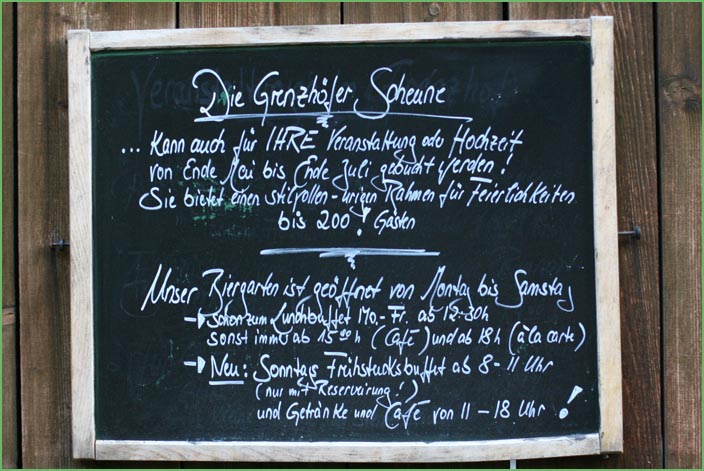 Die Grenzhöfer Scheune
... Kann auch für IHRE Veranstaltung oder Hochzeit
von Ende Mai bis Ende Juli gebucht werden!
Sie bietet einen stilvollen-urigen Rahmen für Feierlichkeiten
bis 200! Gästen
Unser Biergarten ist geöffnet von Montag bis Samstag
schon zum Lunchbuffet Mo.-Fr. ab 12:30h
sonst immer ab 15⁰⁰h (Café) und ab 18h (à la carte)
Neu: Sonntags Frühstücksbuffet ab 8-11 Uhr
(nur mit Reservierung!)
und Getränke und Café von 11-18 Uhr!